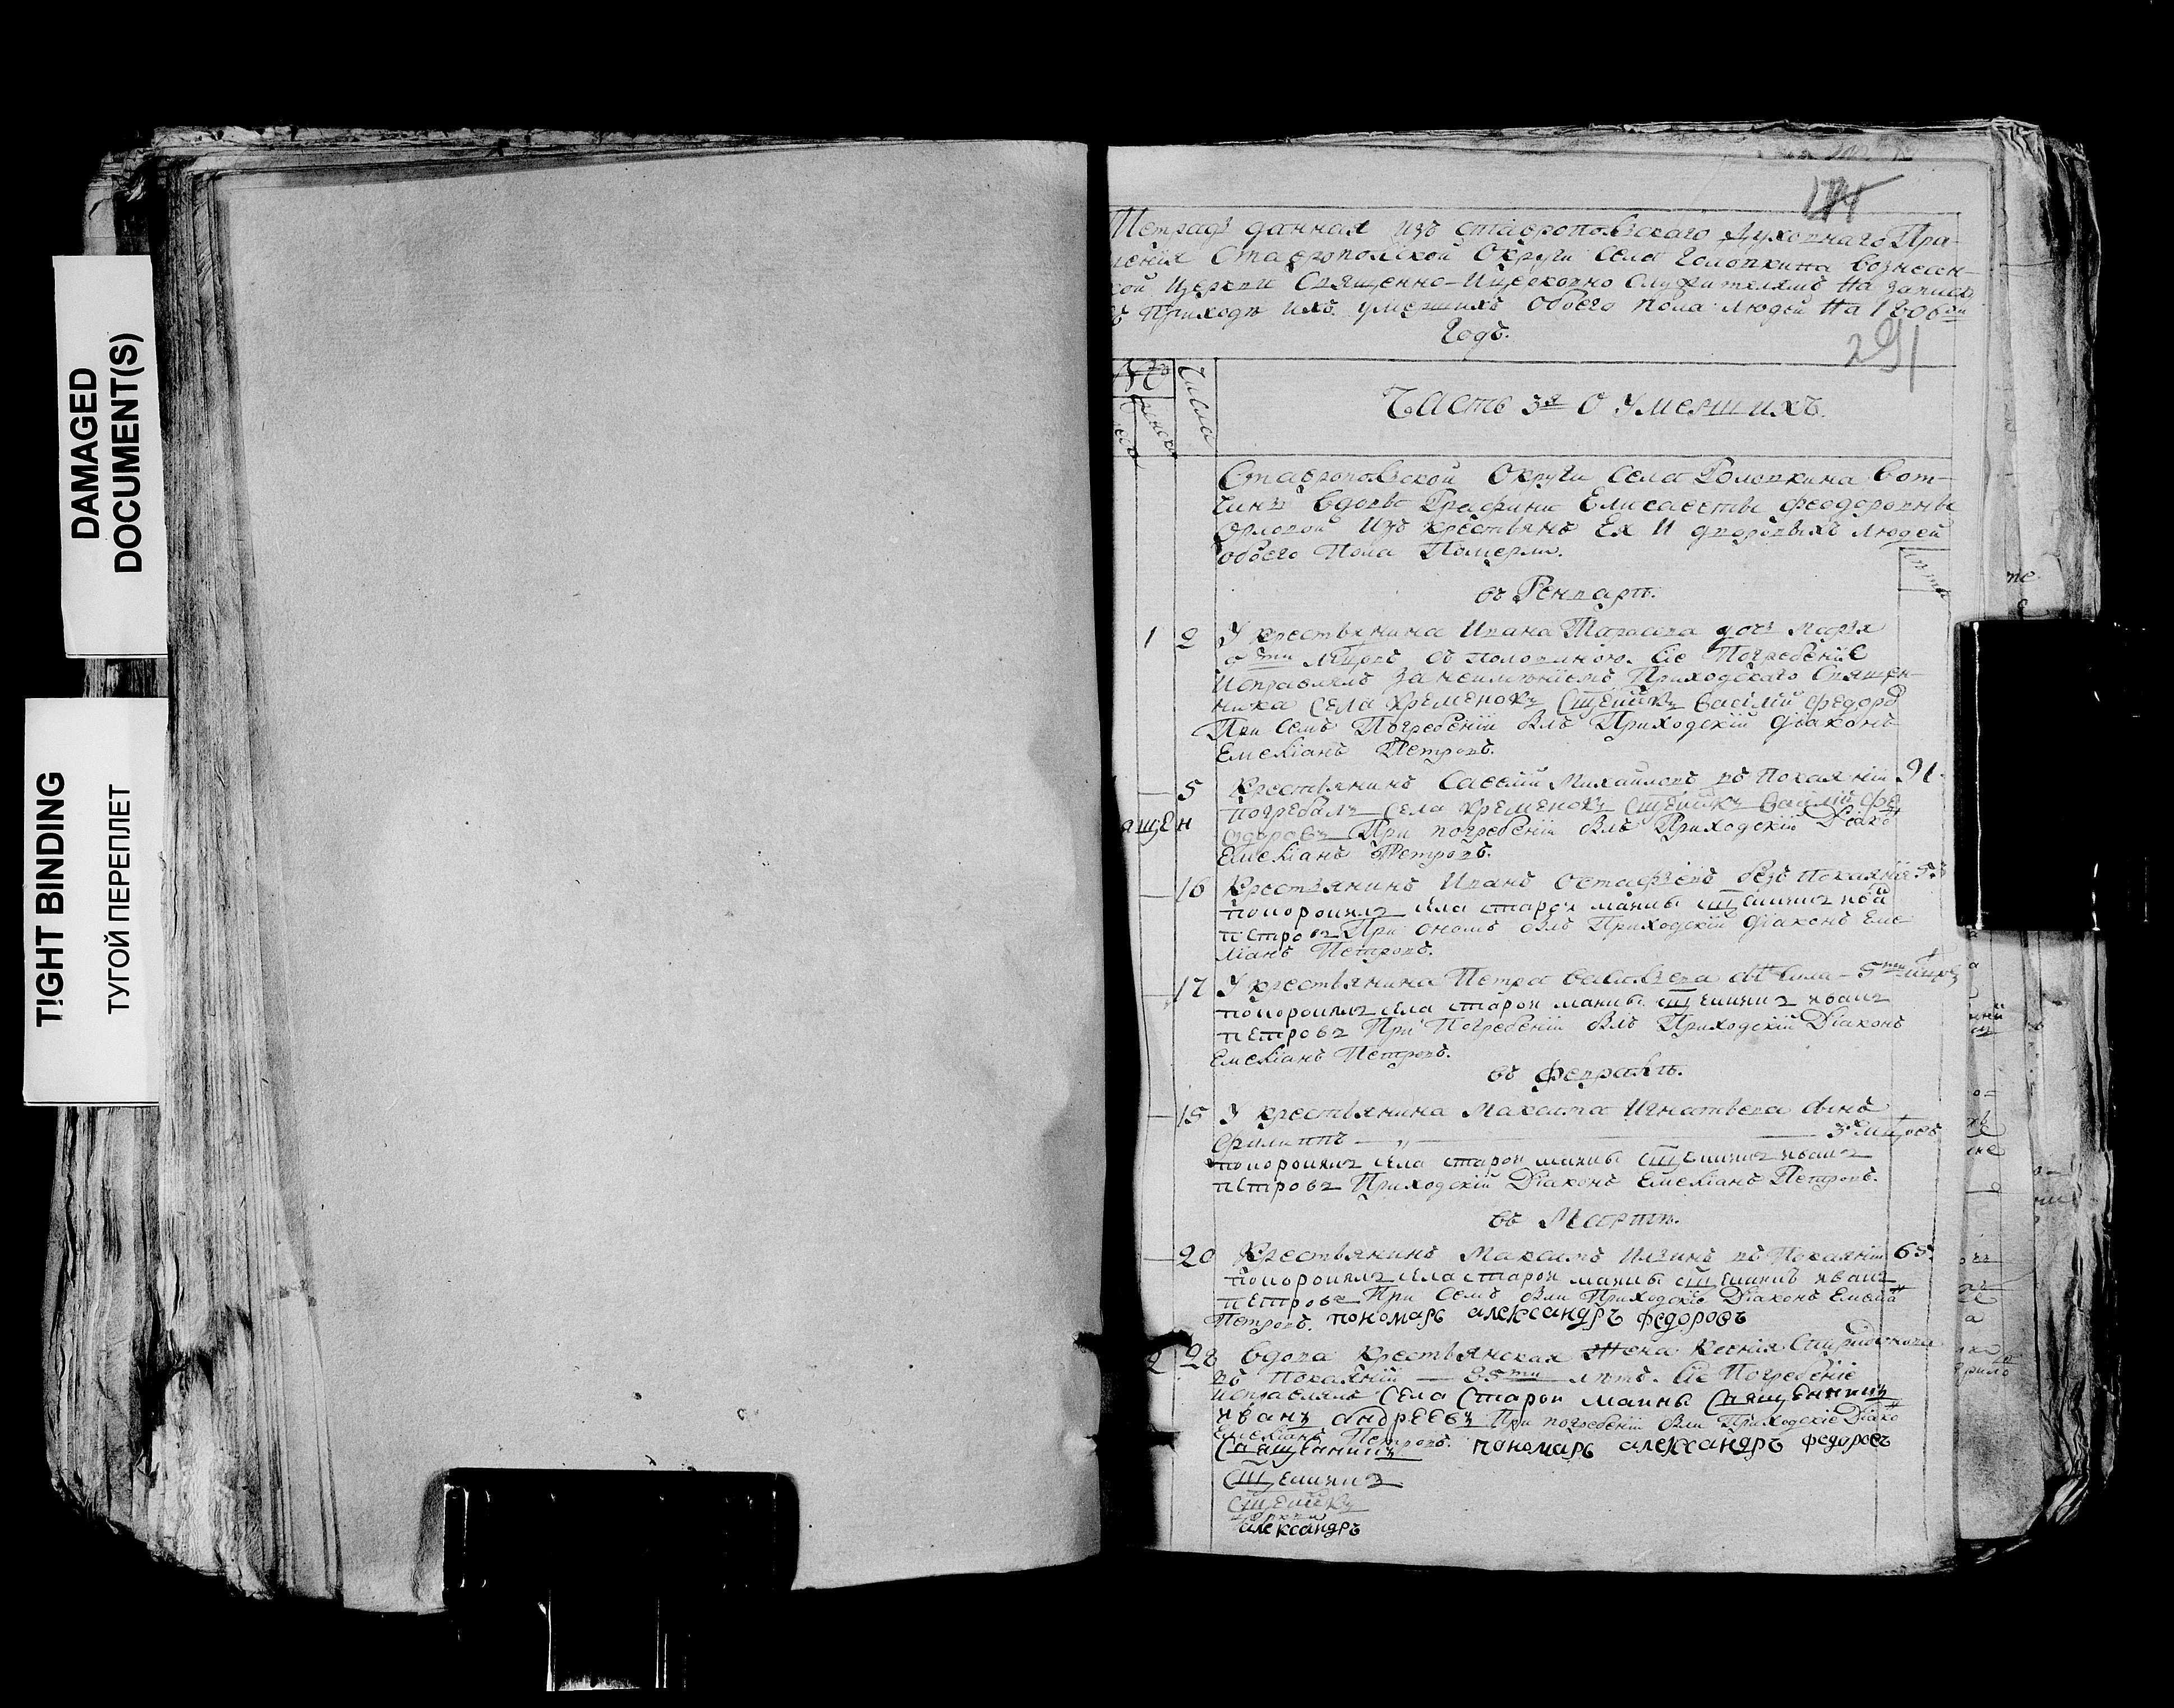 DAMAGED
DOCUMENT(S)
TIGHT BINDING
ТУГОЙ ПЕРЕПЛЕТ
Тетрадь данная изъ ставропольскаго Духовнаго Пра-
ления Ставропольской Округи села Головкина вознесен-
кой Церкви Священно-И церковно служителямъ на записк
въ Приходѣ ихъ умершихъ обоего пола людей На 1806ой
Годъ.
291
Числа
Часть 3я О Умершихъ.
Ставропольской Округи села Головкина вот-
чинѣ вдовы Графини Елисаветы Феодоровны
Орловой Изъ крестьянъ Ея И дворовыхъ людей
обоего Пола Померли.
въ Генварѣ.
1 2 У крестьянина Ивана Тарасова дочь Марья
мцовъ съ половиною. Сіе Погребеніе
Исправлялъ За неимѣніемъ Приходскаго Священ-
ника села Кременокъ Сщеникъ Василій Федоро
При семъ Погребеніи былъ Приходскій дьяконъ
Емеліанъ Петровъ.
5 Крестьянинъ Савелій Михайловъ въ Покаяніи 91.
погребалъ села Кременокъ Сщеникъ Василій фе
одоровъ При погребеніи былъ Приходскій Діако
Емеліанъ Петровъ.
ящен
16 Крестьянинъ Иванъ Остафьевъ безъ Покаянія
похоронилъ села старой маины сщенникъ ива
петровъ При ономъ былъ Приходскій діаконъ Еме
ліанъ Петровъ.
17 У крестьянина Петра Васильева сынъ Сила - 5ти мцовъ
похоронилъ села старой маины сщенникъ иванъ
петровъ При Погребеніи былъ Приходскій Діаконъ
Емеліанъ Петровъ.
въ Февралѣ.
15 У крестьянина Максима Игнатьева сынъ
Филиппъ — „ — 3х мцовъ
похоронилъ села старой маины сщенникъ иванъ
петровъ Приходскій Діаконъ Емеліанъ Петровъ.
въ Мартѣ.
20 Крестьянинъ Максимъ Ильинъ въ Покаяніи 65
похоронилъ села старой маины сщенникъ иванъ
петровъ При семъ были Приходскіе Діаконъ Емеліа
Петровъ. пономарь александръ федоровъ
2 28 Вдова Крестьянская Жена Ксенія Спиридонова
въ Покаяніи — 85ти лѣтъ. Сіе Погребеніе
исправлялъ Села Старой маины Священникъ
иванъ андреевъ При погребеніи были Приходскіе Діако
Емеліанъ Петровъ. пономарь александръ федоровъ
Священникъ
сщенникъ
сщеникъ
александръ